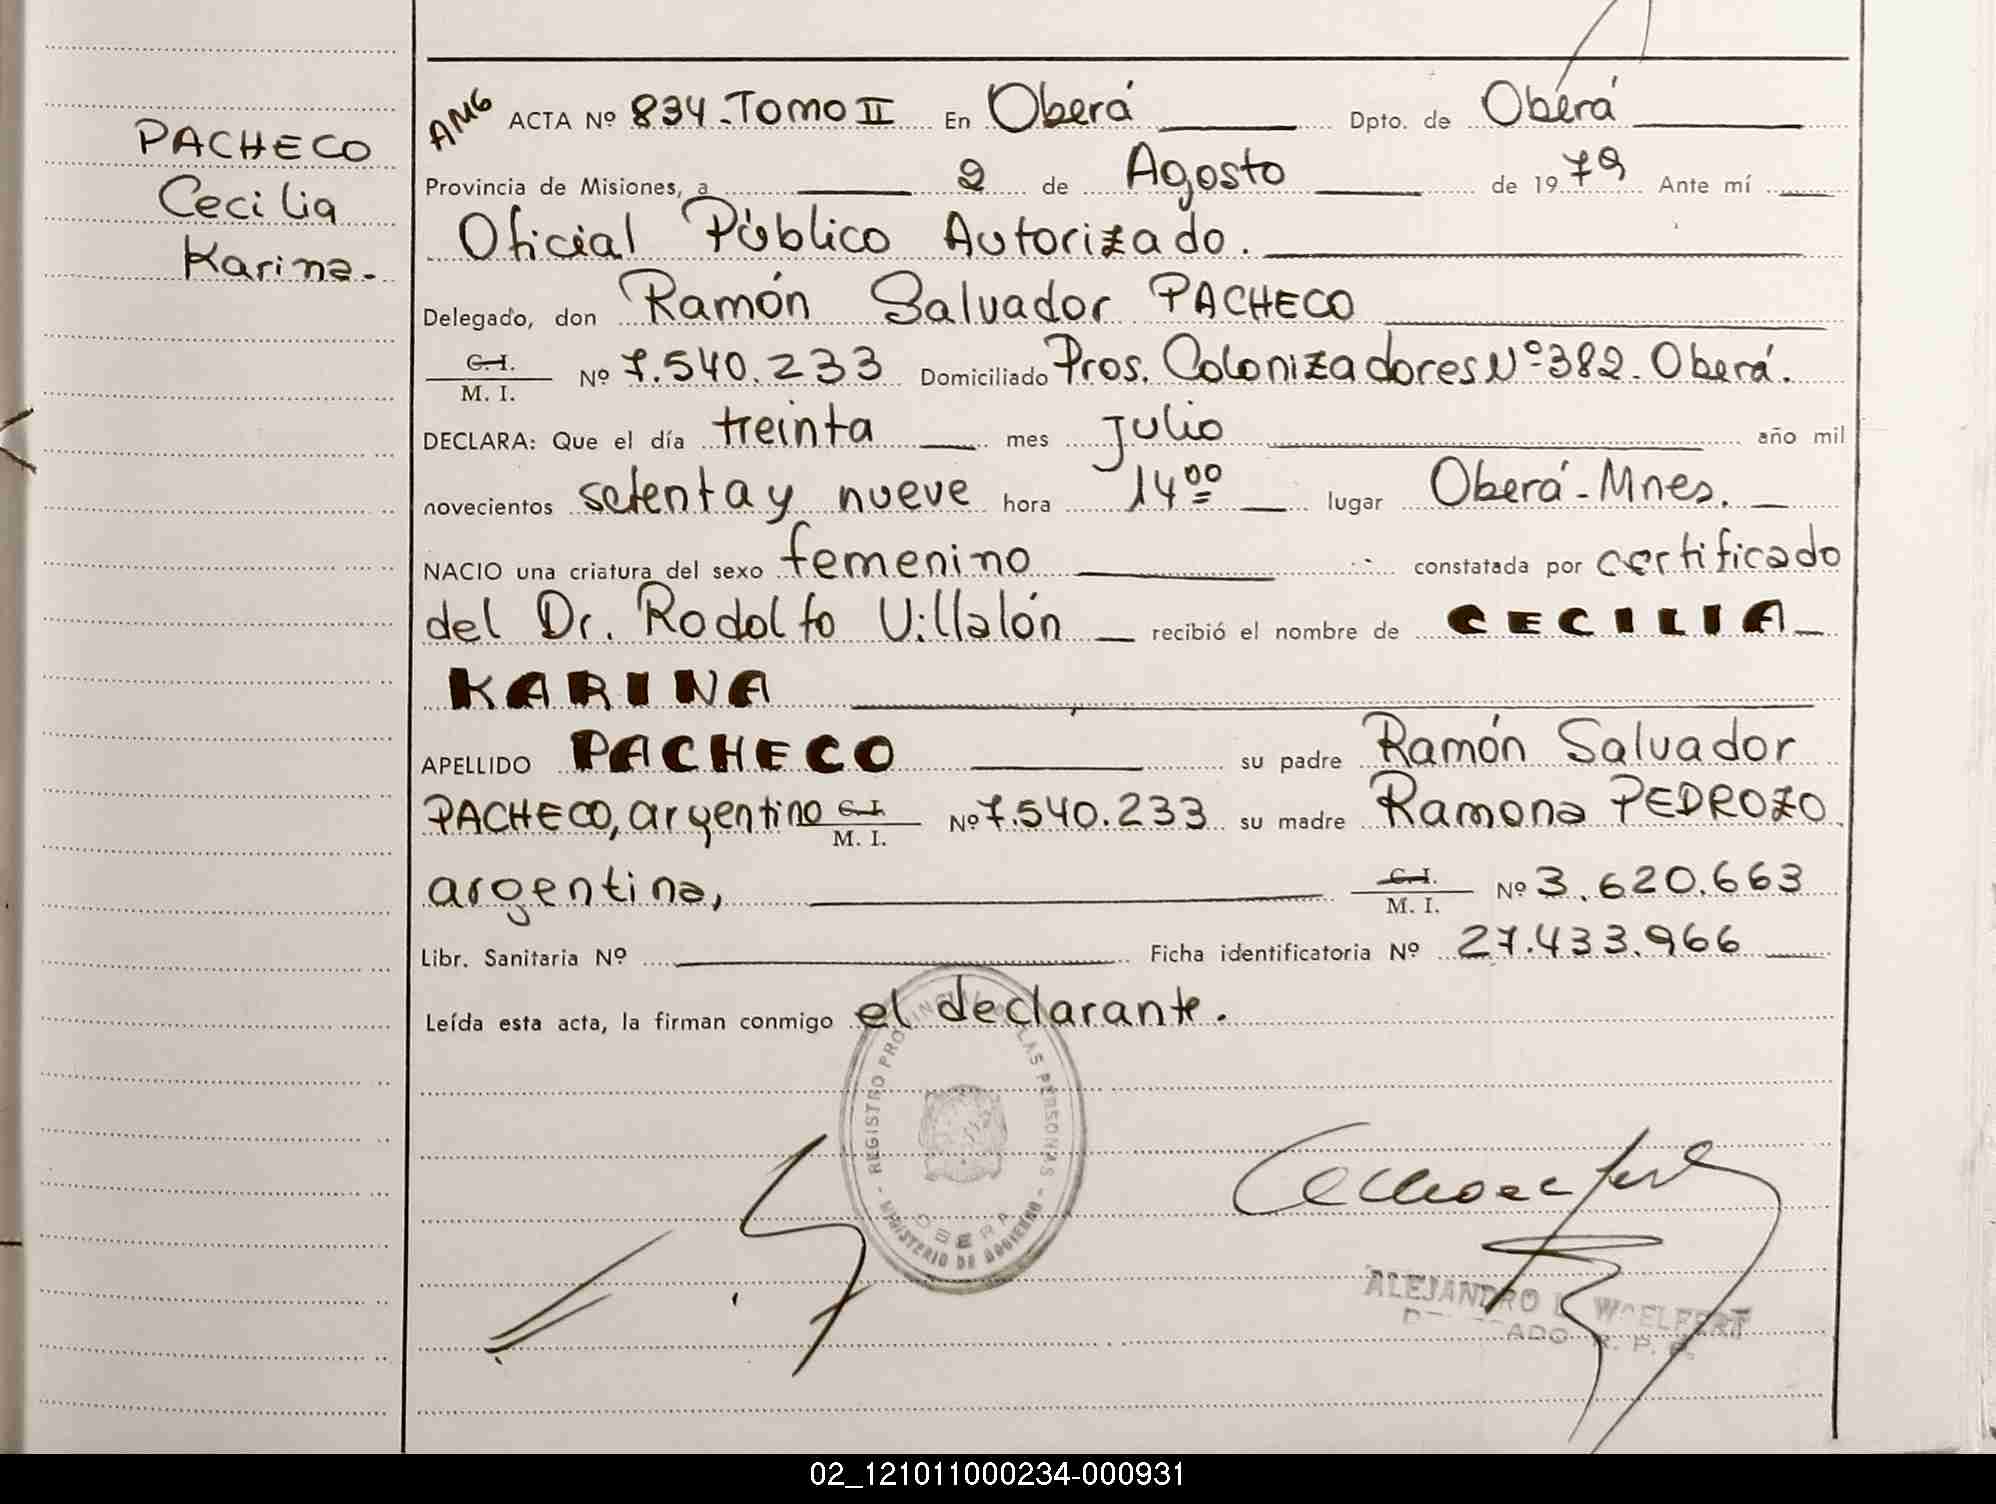 PACHECO
Cecilia
Karina.-
AMG ACTA Nº 834.-Tomo II En Oberá Dpto. de Oberá
Provincia de Misiones, a 2 de Agosto de 1979 Ante mí
Oficial Público Autorizado.
Delegado, don Ramón Salvador PACHECO
C. I.
M. I. Nº 7.540.233 Domiciliado Pros. Colonizadores Nº 382. Oberá.
DECLARA: Que el día treinta mes julio año mil
novecientos setenta y nueve hora 14 00 lugar Oberá-Mnes.
NACIO una criatura del sexo femenino constatada por certificado
del Dr. Rodolfo Villalón recibió el nombre de CECILIA
KARINA
APELLIDO PACHECO su padre Ramón Salvador
PACHECO, argentino C. I. M. I. Nº 7.540.233 su madre Ramona PEDROZO
argentina, C. I. M. I. Nº 3.620.663
Libr. Sanitaria Nº Ficha identificatoria Nº 27.433.966
Leída esta acta, la firman conmigo el declarante.
- REGISTRO PROVINCIAL DE LAS PERSONAS -
OBERA
MINISTERIO DE GOBIERNO
ALEJANDRO WOELFERT
DELEGADO R. P. P.
02_121011000234-000931